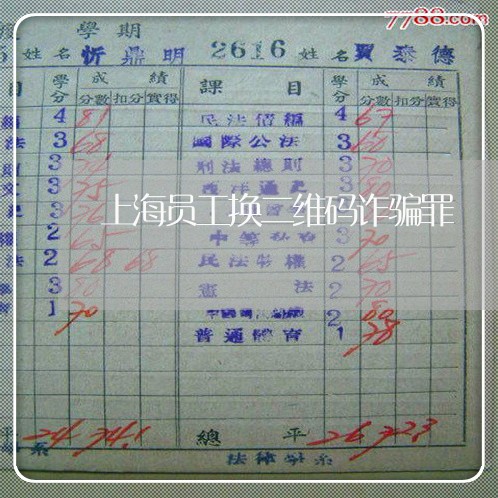 7788.com
學期
姓名 忻鼎明 2616 姓名 賈泰德
目 學分 成績 課目 學分 成績
分數 扣分 實得 分數 扣分 實得
4 81 民法債編 4 67
法 3 68 國際公法 3 60
3 刑法總則 3 70
3 75 西洋通史 3
3 76 3
上海员工换二维码诈骗罪
權 2 65 3 70
法 2 68 68 民法物權 2 65
3 80 憲法 2 70
育 1 70 2 80
普通體育 1 78
平 24 74.1 總平 26 72.3
系 法律學系